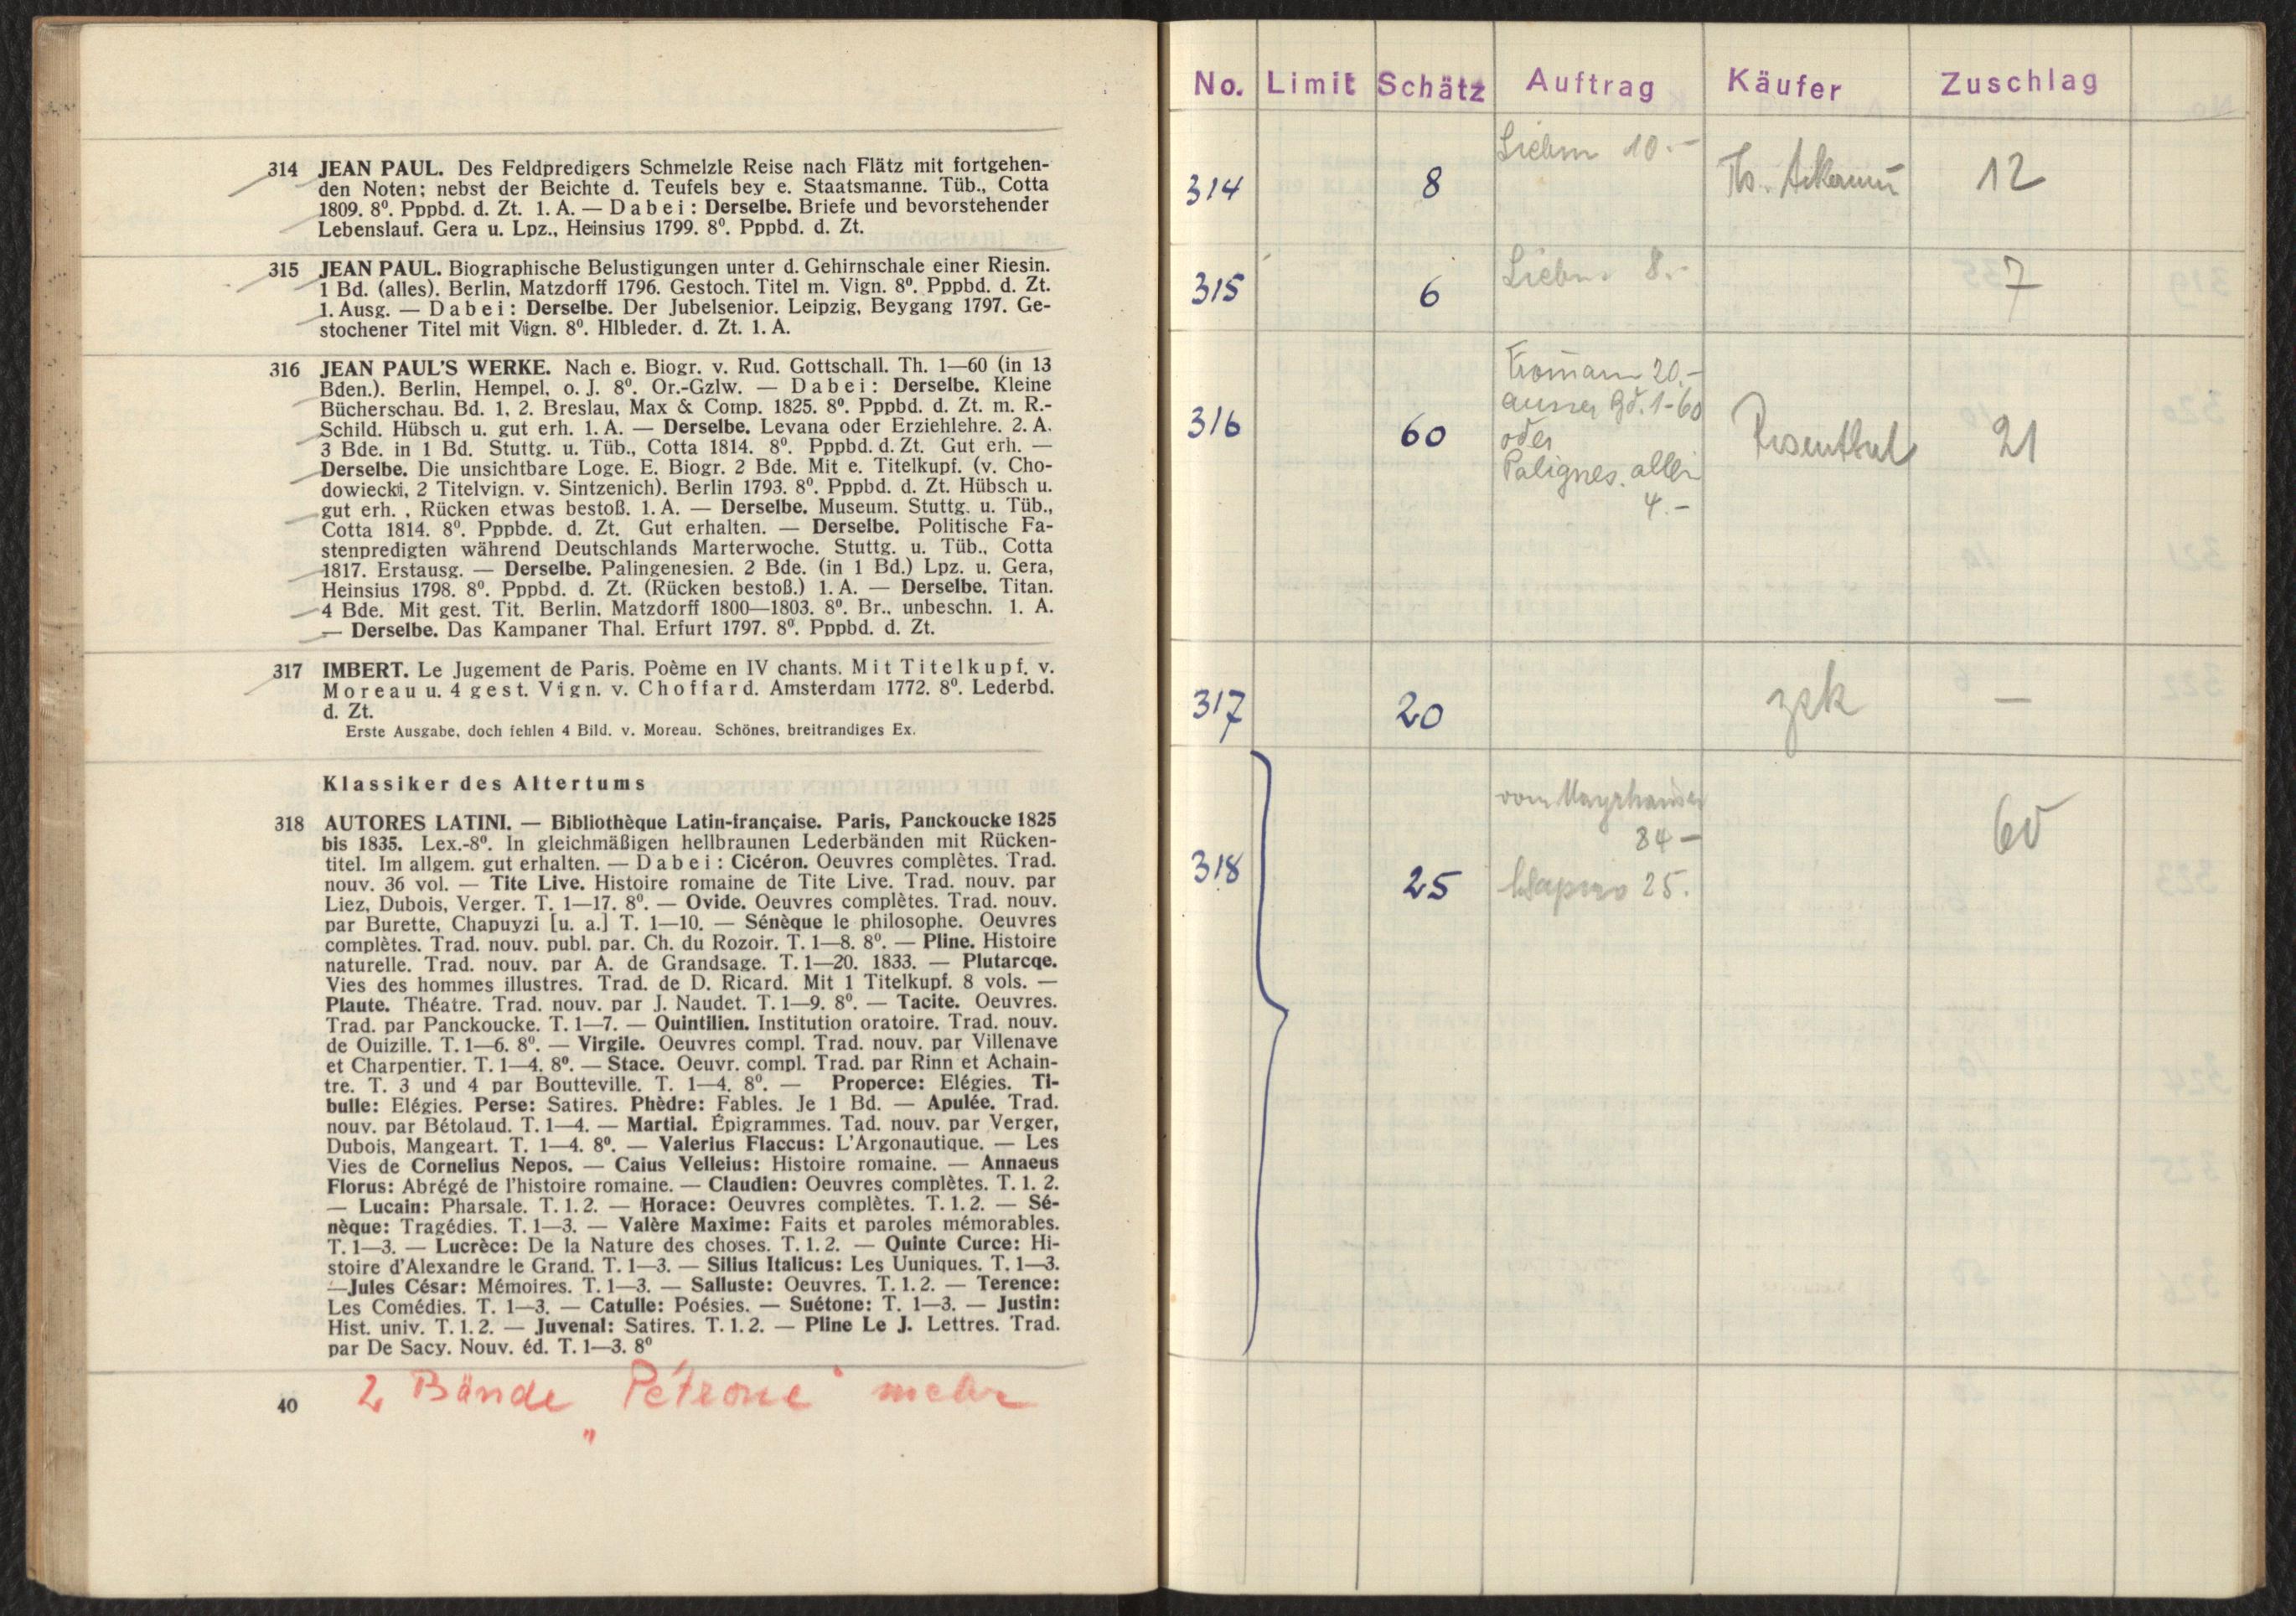 314 JEAN PAUL. Des Feldpredigers Schmelzle Reise nach Flätz mit fortgehen-
den Noten; nebst der Beichte d. Teufels bey e. Staatsmanne. Tüb., Cotta
1809. 8⁰. Pppbd. d. Zt. 1. A. — Dabei: Derselbe. Briefe und bevorstehender
Lebenslauf. Gera u. Lpz., Heinsius 1799. 8⁰. Pppbd. d. Zt.
315 JEAN PAUL. Biographische Belustigungen unter d. Gehirnschale einer Riesin.
1 Bd. (alles). Berlin, Matzdorff 1796. Gestoch. Titel m. Vign. 8⁰. Pppbd. d. Zt.
1. Ausg. — Dabei: Derselbe. Der Jubelsenior. Leipzig, Beygang 1797. Ge-
stochener Titel mit Vign. 8⁰. Hlbleder. d. Zt. 1. A.
316 JEAN PAUL'S WERKE. Nach e. Biogr. v. Rud. Gottschall. Th. 1—60 (in 13
Bden.). Berlin, Hempel, o. J. 8⁰. Or.-Gzlw. — Dabei: Derselbe. Kleine
Bücherschau. Bd. 1, 2. Breslau, Max & Comp. 1825. 8⁰. Pppbd. d. Zt. m. R.-
Schild. Hübsch u. gut erh. 1. A. — Derselbe. Levana oder Erziehlehre. 2. A.
3 Bde. in 1 Bd. Stuttg. u. Tüb., Cotta 1814. 8⁰. Pppbd. d. Zt. Gut erh. —
Derselbe. Die unsichtbare Loge. E. Biogr. 2 Bde. Mit e. Titelkupf. (v. Cho-
dowiecki, 2 Titelvign. v. Sintzenich). Berlin 1793. 8⁰. Pppbd. d. Zt. Hübsch u.
gut erh. , Rücken etwas bestoß. 1. A. — Derselbe. Museum. Stuttg. u. Tüb.,
Cotta 1814. 8⁰. Pppbde. d. Zt. Gut erhalten. — Derselbe. Politische Fa-
stenpredigten während Deutschlands Marterwoche. Stuttg. u. Tüb., Cotta
1817. Erstausg. — Derselbe. Palingenesien. 2 Bde. (in 1 Bd.) Lpz. u. Gera,
Heinsius 1798. 8⁰. Pppbd. d. Zt. (Rücken bestoß.) 1. A. — Derselbe. Titan.
4 Bde. Mit gest. Tit. Berlin, Matzdorff 1800—1803. 8⁰. Br., unbeschn. 1. A.
— Derselbe. Das Kampaner Thal. Erfurt 1797. 8⁰. Pppbd. d. Zt.
317 IMBERT. Le Jugement de Paris. Poème en IV chants. Mit Titelkupf. v.
Moreau u. 4 gest. Vign. v. Choffard. Amsterdam 1772. 8⁰. Lederbd.
d. Zt.
Erste Ausgabe, doch fehlen 4 Bild. v. Moreau. Schönes, breitrandiges Ex.
Klassiker des Altertums
318 AUTORES LATINI. — Bibliothèque Latin-française. Paris, Panckoucke 1825
bis 1835. Lex.-8⁰. In gleichmäßigen hellbraunen Lederbänden mit Rücken-
titel. Im allgem. gut erhalten. — Dabei: Cicéron. Oeuvres complètes. Trad.
nouv. 36 vol. — Tite Live. Histoire romaine de Tite Live. Trad. nouv. par
Liez, Dubois, Verger. T. 1—17. 8⁰. — Ovide. Oeuvres complètes. Trad. nouv.
par Burette, Chapuyzi [u. a.] T. 1—10. — Sénèque le philosophe. Oeuvres
complètes. Trad. nouv. publ. par. Ch. du Rozoir. T. 1—8. 8⁰. — Pline. Histoire
naturelle. Trad. nouv. par A. de Grandsage. T. 1—20. 1833. — Plutarcqe.
Vies des hommes illustres. Trad. de D. Ricard. Mit 1 Titelkupf. 8 vols. —
Plaute. Théatre. Trad. nouv. par J. Naudet. T. 1—9. 8⁰. — Tacite. Oeuvres.
Trad. par Panckoucke. T. 1—7. — Quintilien. Institution oratoire. Trad. nouv.
de Ouizille. T. 1—6. 8⁰. — Virgile. Oeuvres compl. Trad. nouv. par Villenave
et Charpentier. T. 1—4. 8⁰. — Stace. Oeuvr. compl. Trad. par Rinn et Achain-
tre. T. 3 und 4 par Boutteville. T. 1—4. 8⁰. — Properce: Elégies. Ti-
bulle: Elégies. Perse: Satires. Phèdre: Fables. Je 1 Bd. — Apulée. Trad.
nouv. par Bétolaud. T. 1—4. — Martial. Épigrammes. Tad. nouv. par Verger,
Dubois, Mangeart. T. 1—4. 8⁰. — Valerius Flaccus: L'Argonautique. — Les
Vies de Cornelius Nepos. — Caius Velleius: Histoire romaine. — Annaeus
Florus: Abrégé de l'histoire romaine. — Claudien: Oeuvres complètes. T. 1. 2.
— Lucain: Pharsale. T. 1. 2. — Horace: Oeuvres complètes. T. 1. 2. — Sé-
nèque: Tragédies. T. 1—3. — Valère Maxime: Faits et paroles mémorables.
T. 1—3. — Lucrèce: De la Nature des choses. T. 1. 2. — Quinte Curce: Hi-
stoire d'Alexandre le Grand. T. 1—3. — Silius Italicus: Les Uuniques. T. 1—3.
—Jules César: Mémoires. T. 1—3. — Salluste: Oeuvres. T. 1. 2. — Terence:
Les Comédies. T. 1—3. — Catulle: Poésies. — Suétone: T. 1—3. — Justin:
Hist. univ. T. 1. 2. — Juvenal: Satires. T. 1. 2. — Pline Le J. Lettres. Trad.
par De Sacy. Nouv. éd. T. 1—3. 8⁰
2 Bände „Pétrone" mehr
40
No. Limit Schätz Auftrag Käufer Zuschlag
Liebm 10.-
314 8 Th. Ackermann 12
8.-
315 6 7
20.-
ausser Bd. 1-60
316 60 oder Rosenthal 21
Palignes. allein
4.-
317 20 zrk —
von Mayrhauser
84 — 60
318 25 25.